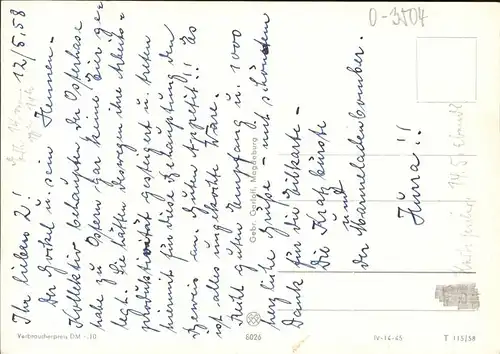 12/5.58
Ihr lieben 2!
Der Gockel u. sein Hennen-
Kollektiv behaupten der Osterhase
habe zu Ostern gar keine Eier ge-
legt. Sie hätten deswegen ihre Arbeits-
produktivität gesteigert u. treten
hiermit für diese Behauptung den
Beweis an. Guten Appetit!! Es
ist alles ungekochte Ware.
Recht guten Empfang u. 1000
herzliche Grüße - mit schönstem
Dank für die Eilkarte -
Die Kratzbürste
und
der Marmeladenbomber.
Hurra!!
0-3504
Gebr. Garloff, Magdeburg
Verbraucherpreis DM -.10
6026
IV-14-45
T 115/58